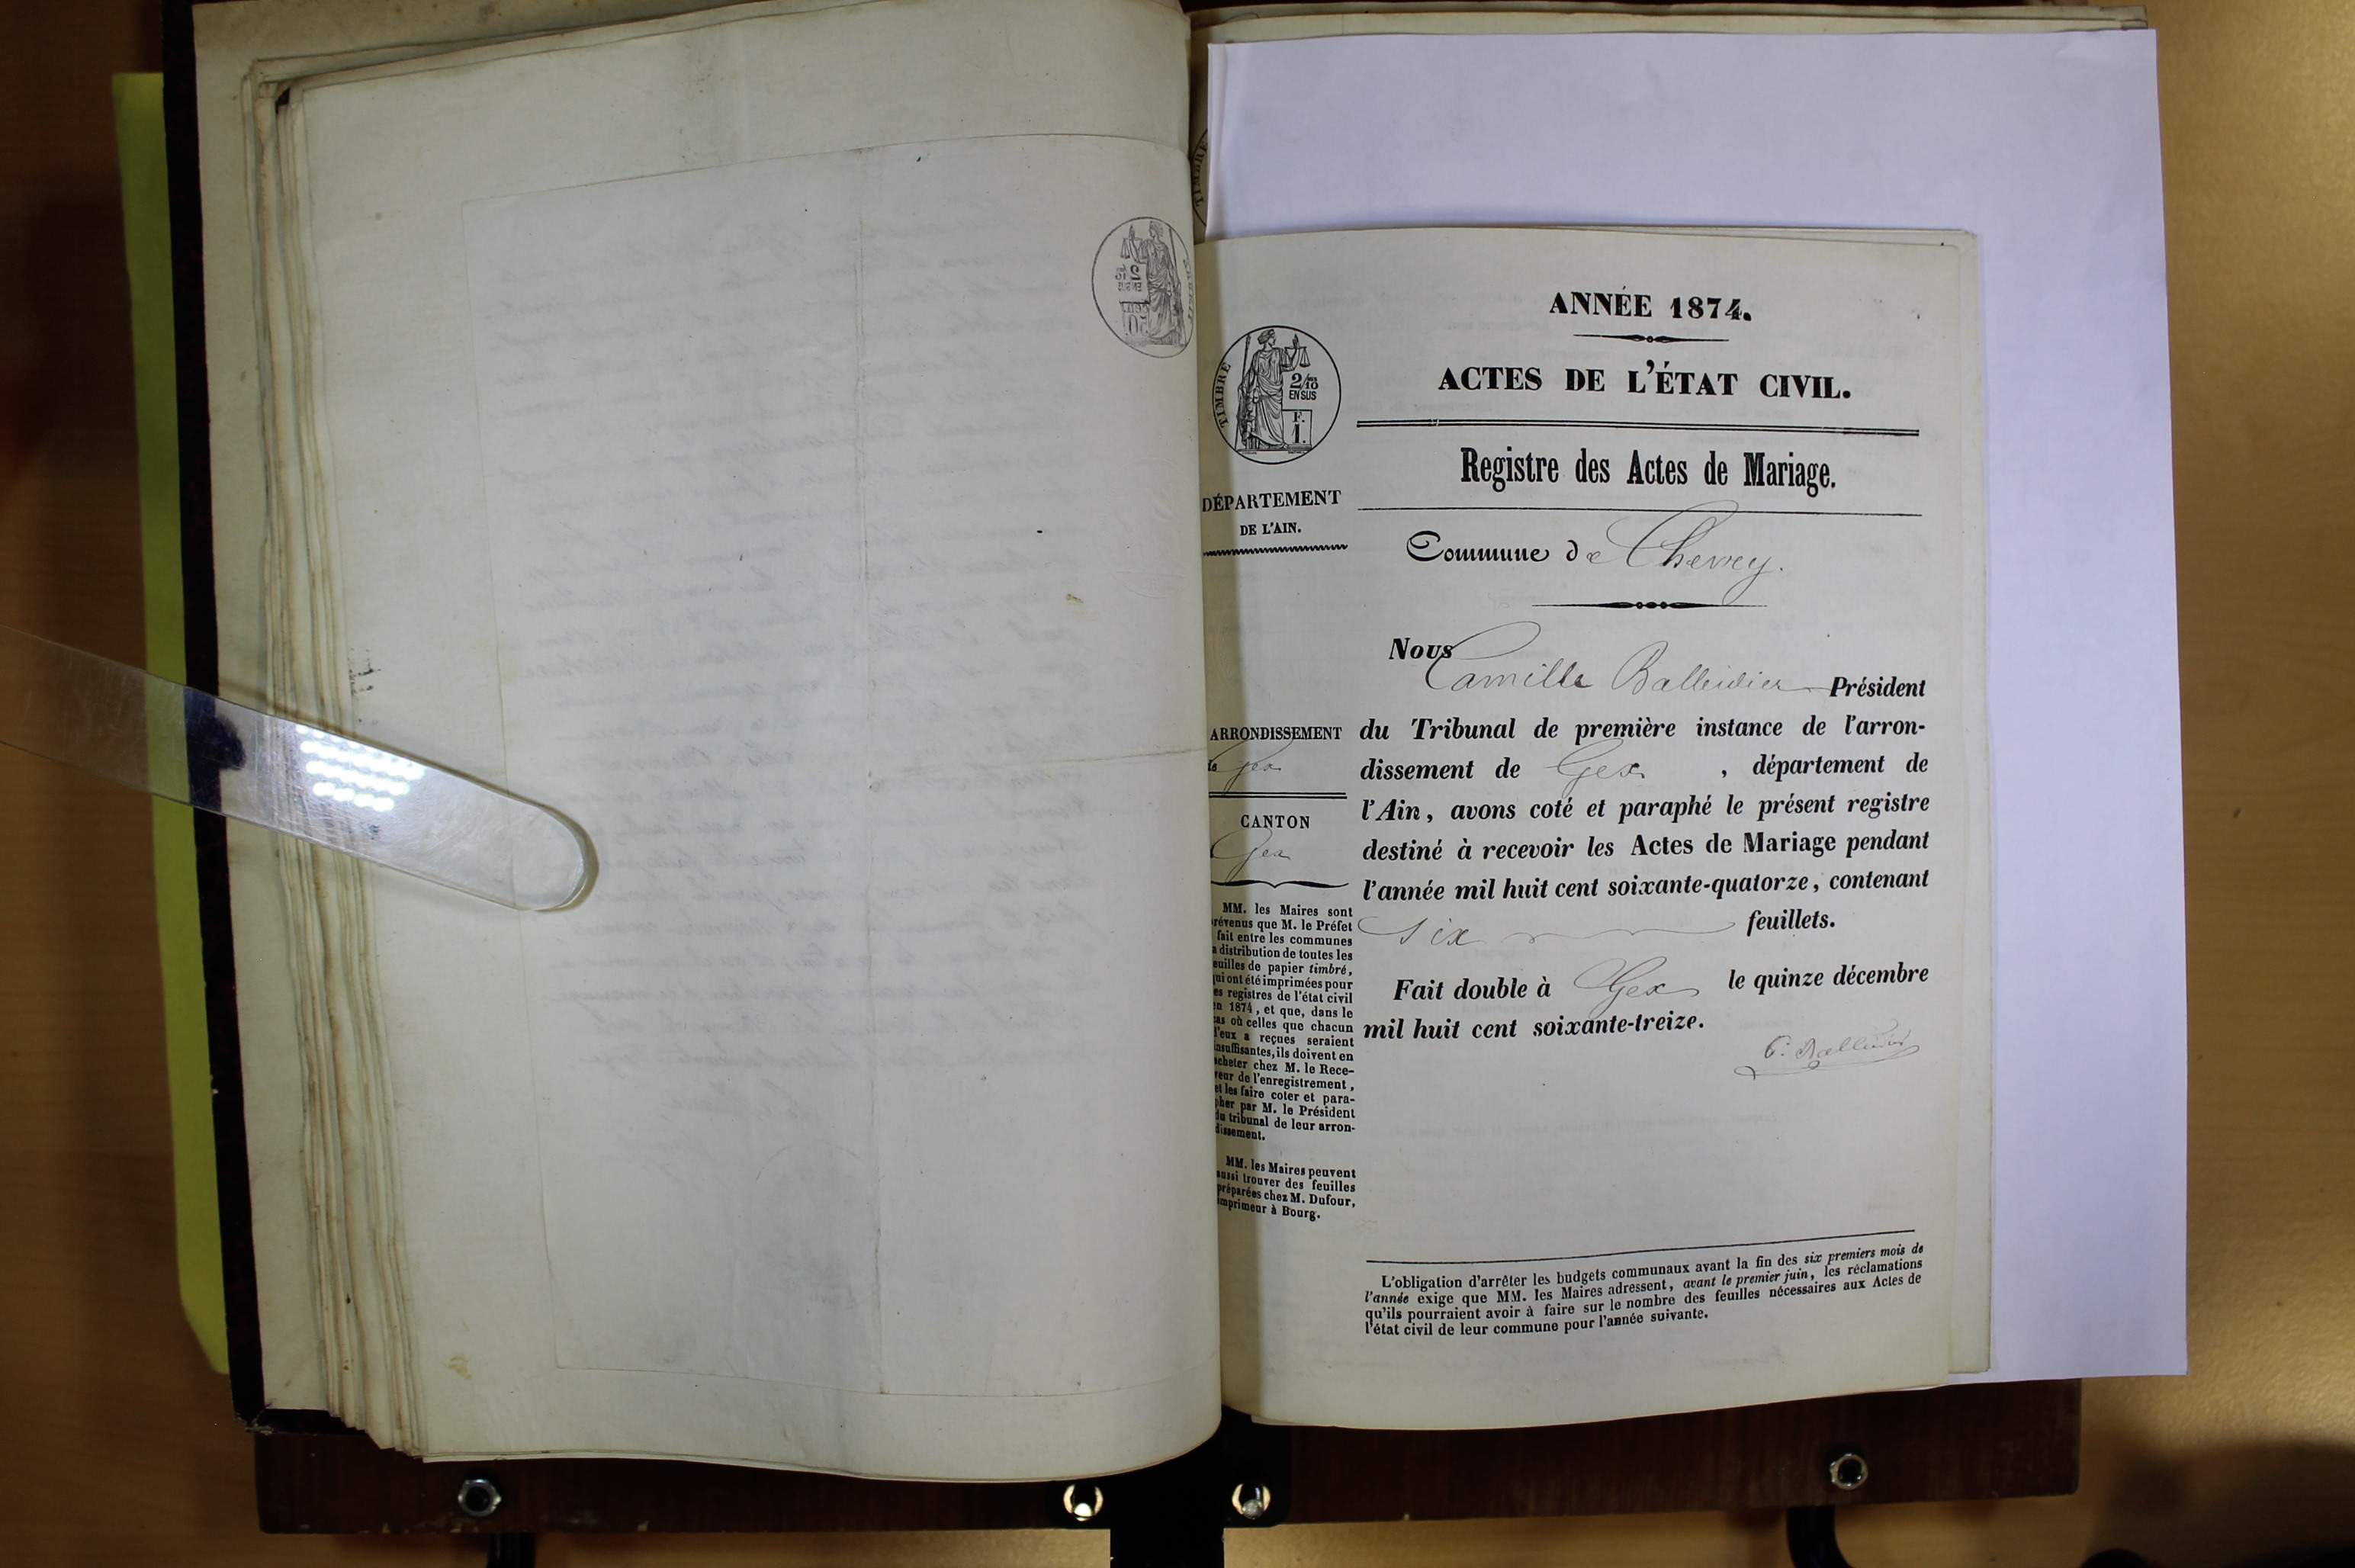 ANNÉE 1874.
ACTES DE L'ÉTAT CIVIL.
Registre des Actes de Mariage.
Commune de Chevry.
TIMBRE
2/10
EN SUS
F.
1.
DÉPARTEMENT
DE L'AIN.
ARRONDISSEMENT
de Gex
CANTON
Gex
MM. les Maires sont
révenus que M. le Préfet
fait entre les communes
a distribution de toutes les
euilles de papier timbré,
qui ont été imprimées pour
es registres de l'état civil
en 1874, et que, dans le
cas où celles que chacun
d'eux a reçues seraient
insuffisantes, ils doivent en
acheter chez M. le Rece-
veur de l'enregistrement,
et les faire coter et para-
pher par M. le Président
du tribunal de leur arron-
dissement.
MM. les Maires peuvent
aussi trouver des feuilles
préparées chez M. Dufour,
imprimeur à Bourg.
Nous
Camille Balleidier Président
du Tribunal de première instance de l'arron-
dissement de Gex , département de
l'Ain, avons coté et paraphé le présent registre
destiné à recevoir les Actes de Mariage pendant
l'année mil huit cent soixante-quatorze, contenant
six feuillets.
Fait double à Gex le quinze décembre
mil huit cent soixante-treize.
C. Balleidier
L'obligation d'arrêter les budgets communaux avant la fin des six premiers mois de
l'année exige que MM. les Maires adressent, avant le premier juin, les réclamations
qu'ils pourraient avoir à faire sur le nombre des feuilles nécessaires aux Actes de
l'état civil de leur commune pour l'année suivante.